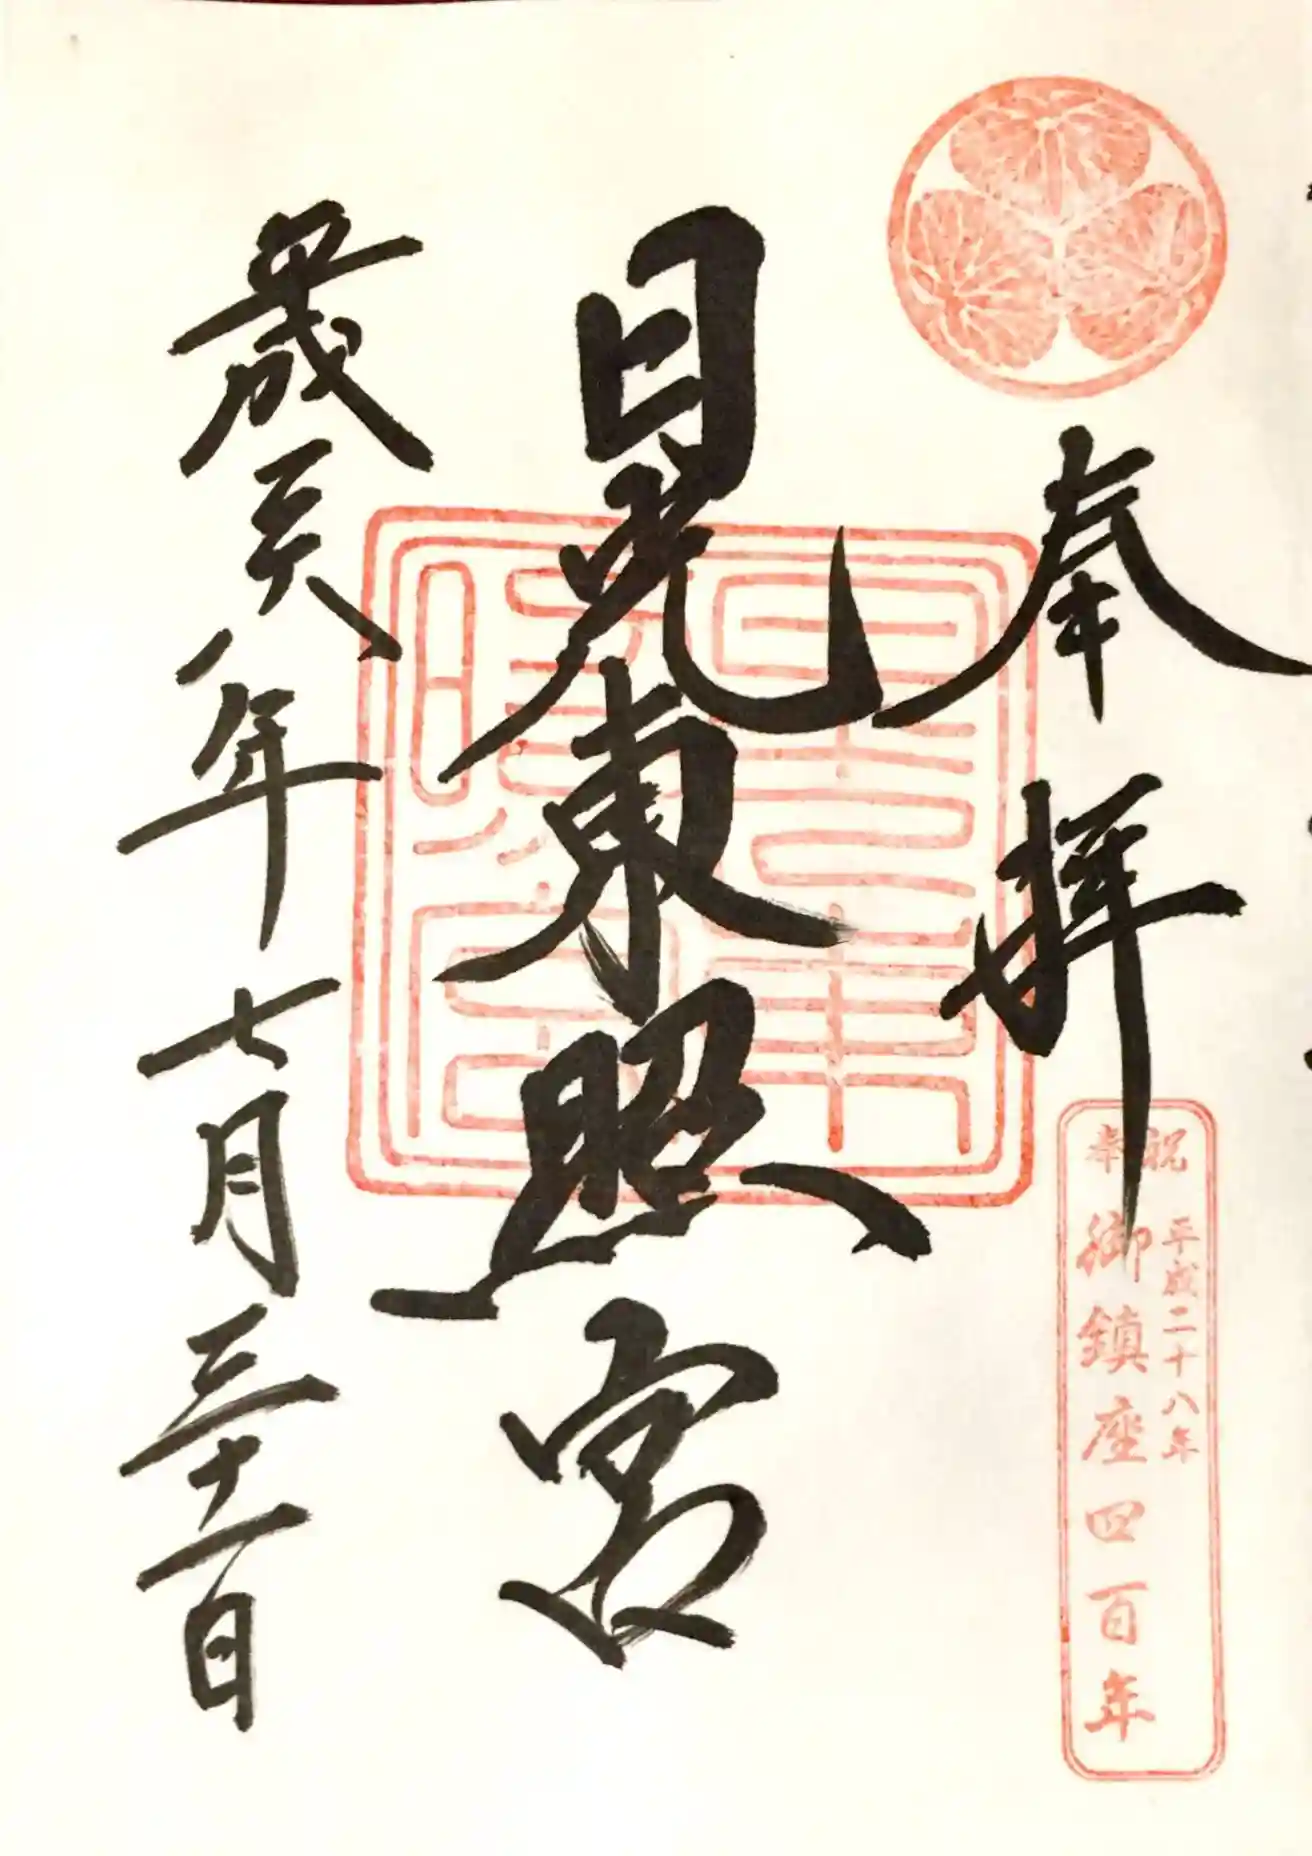 奉拝
奉祝
平成二十八年
御鎮座四百年
日光東照宮
平成二十八年七月三十一日